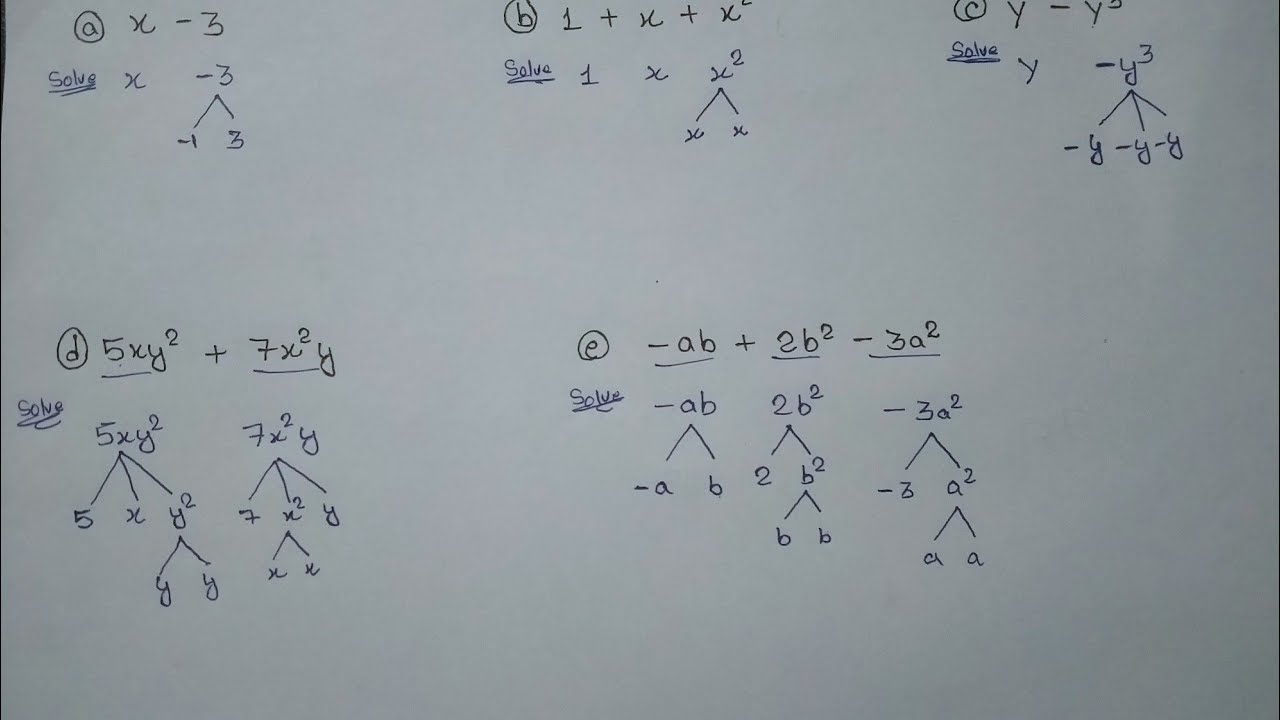 ⓐ x - 3
Solve x -3
-1 3
ⓑ 1 + x + x²
Solve 1 x x²
x x
ⓒ y - y³
Solve y -y³
-y -y -y
ⓓ 5xy² + 7x²y
Solve
5xy² 7x²y
5 x y² 7 x² y
y y x x
ⓔ -ab + 2b² - 3a²
Solve -ab 2b² - 3a²
-a b 2 b² -3 a²
b b a a